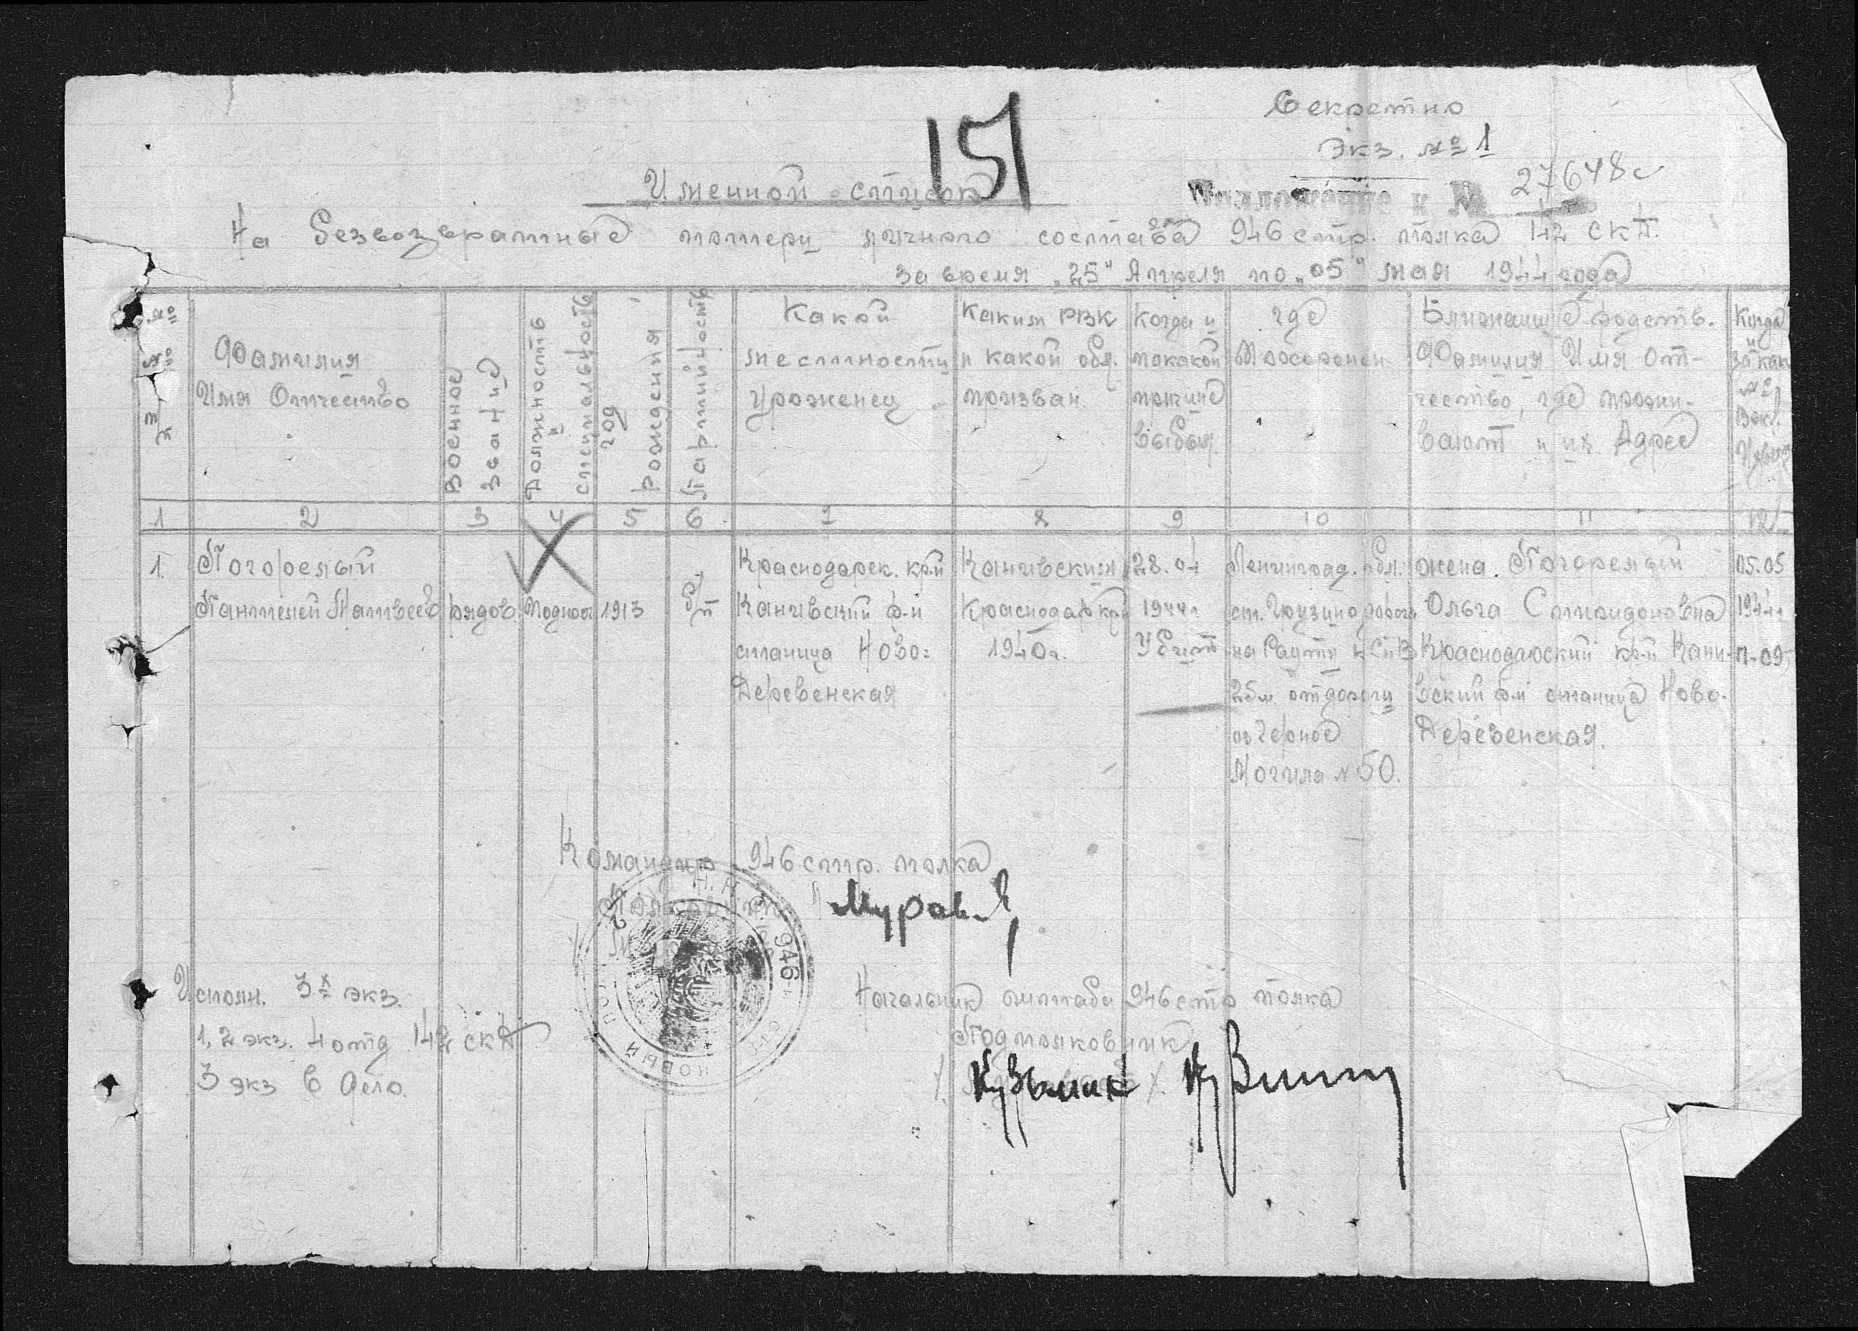 Секретно
Экз. №1
151
Приложение к № 27648с
Именной список
На безвозвратные потери личного состава 946 стр. полка 142 СКД.
за время „25" Апреля по „05" мая 1944 года
№№
Фамилия Имя Отчество
Военное звание
Должность и специальность
год рождения
Партийность
Какой местности уроженец
Каким РВК и какой обл. призван.
Когда и по какой причине выбыл.
где похоронен
Ближайшие родств. Фамилия Имя Отчество, где проживают и их Адрес
Когда и за каким №
1 2 3 4 5 6 7 8 9 10 11 12
1. Погорелый
Пантелей Матвеев.
рядов.
1913
б/п
Краснодарск. край
Каневский р-н
станица Ново=
Деревенская
Каневским
Краснодар край
1940г.
28.04
1944г.
Убит
Ленинград. обл.
ст. Грузино
25м от дороги
оз Черное
Могила №50.
жена. Погорелый
Ольга Спиридоновна
Краснодарский край Кане-
вский р-н станица Ново-
Деревенская.
05.05
1944г
п-09
Командир 946 стр. полка
Полковник
Мурав
946-й стр
новый пол
Исполн. 3х экз.
1,2 экз. 4 отд 142 СКД
3 экз в дело.
Начальник штаба 946 стр полка
Подполковник